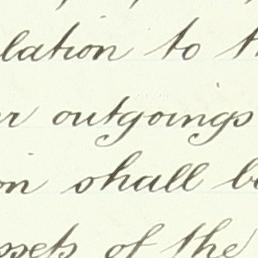 lation to t
r outgoings
on shall b
ssets of the